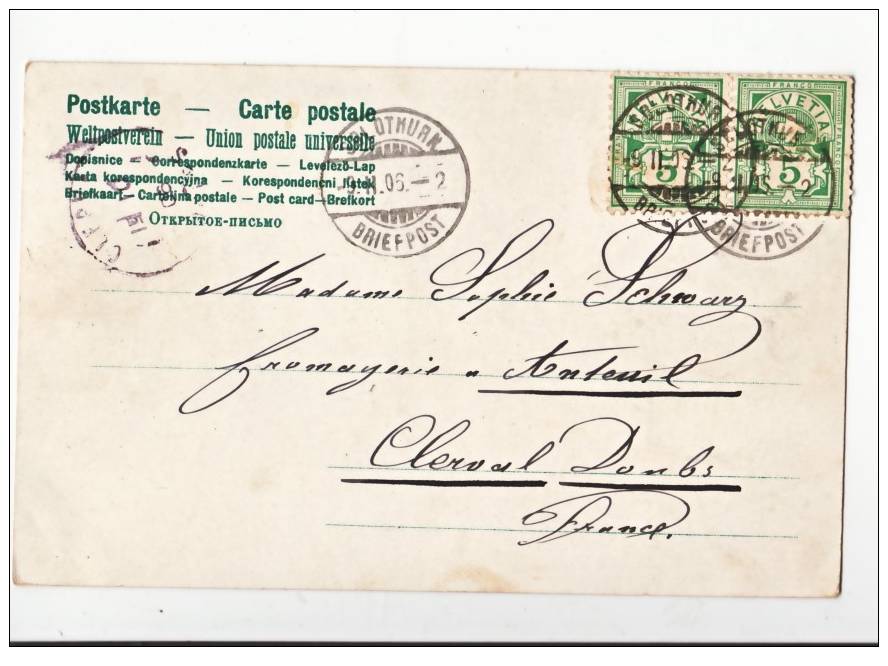 Postkarte — Carte postale
Weltpostverein — Union postale universelle
Dopisnice — Correspondenzkarte — Levelező-Lap
Karta korespondencyjna — Korespondenční lístek
Briefkaart — Cartolina postale — Post card — Brefkort
Открытое-письмо
SOLOTHURN
9.II.06.—2
BRIEFPOST
FRANCO
HELVETIA
5
SOLOTHURN
9.II.06
BRIEFPOST
FRANCO
HELVETIA
5
FRANCO
9.II.06.—2
BRIEFPOST
Madame Sophie Schwarz
Fromagerie a Anteuil
Clerval Doubs
France.